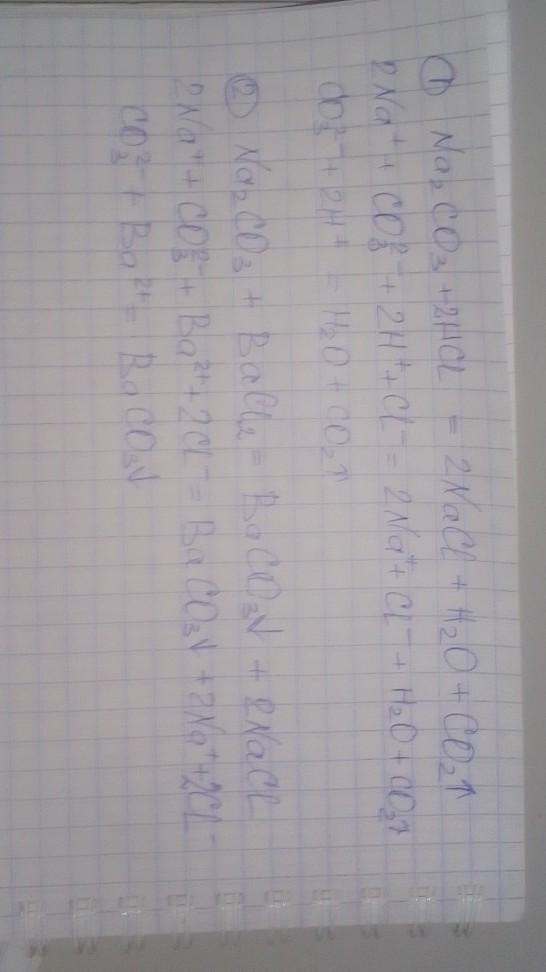 ① Na₂CO₃ + 2HCl = 2NaCl + H₂O + CO₂↑
2Na⁺ + CO₃²⁻ + 2H⁺ + Cl⁻ = 2Na⁺ + Cl⁻ + H₂O + CO₂↑
CO₃²⁻ + 2H⁺ = H₂O + CO₂↑
② Na₂CO₃ + BaCl₂ = BaCO₃↓ + 2NaCl
2Na⁺ + CO₃²⁻ + Ba²⁺ + 2Cl⁻ = BaCO₃↓ + 2Na⁺ + 2Cl⁻
CO₃²⁻ + Ba²⁺ = BaCO₃↓